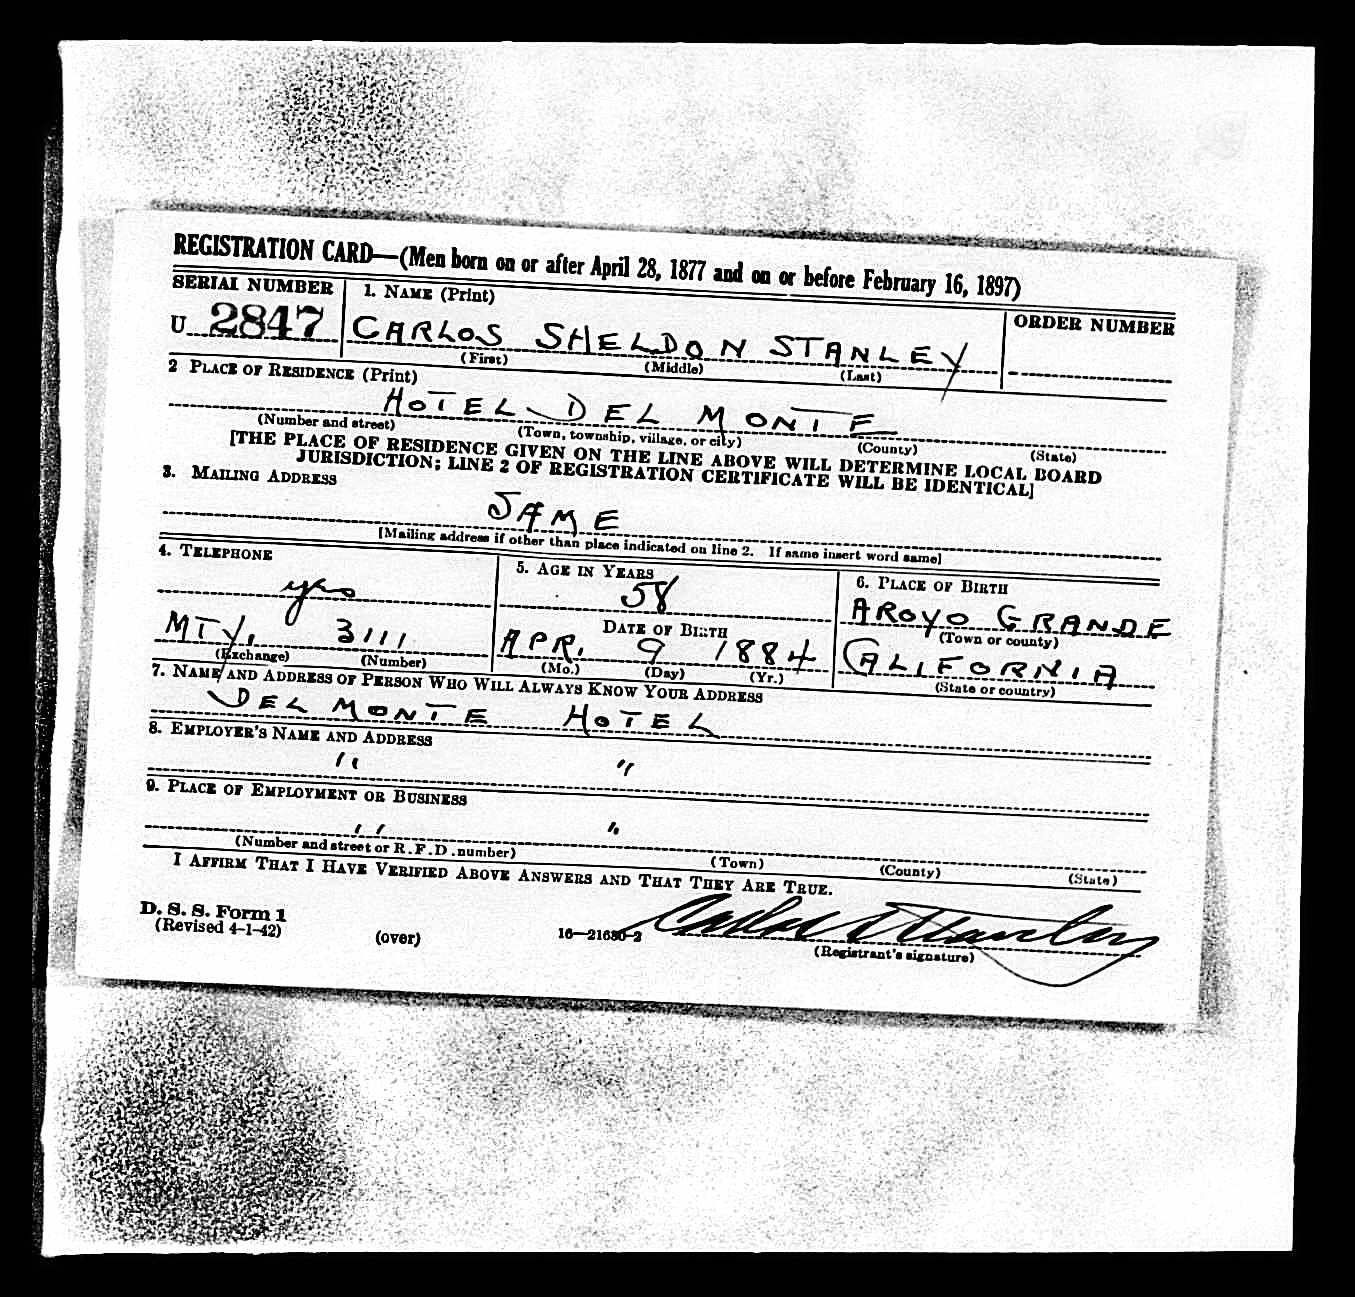 REGISTRATION CARD—(Men born on or after April 28, 1877 and on or before February 16, 1897)
SERIAL NUMBER
U 2847
1. NAME (Print)
CARLOS SHELDON STANLEY
(First) (Middle) (Last)
ORDER NUMBER
2 PLACE OF RESIDENCE (Print)
HOTEL DEL MONTE
(Number and street) (Town, township, village, or city) (County) (State)
[THE PLACE OF RESIDENCE GIVEN ON THE LINE ABOVE WILL DETERMINE LOCAL BOARD
JURISDICTION; LINE 2 OF REGISTRATION CERTIFICATE WILL BE IDENTICAL]
3. MAILING ADDRESS
SAME
[Mailing address if other than place indicated on line 2. If same insert word same]
4. TELEPHONE
yes
MTY. 3111
(Exchange) (Number)
5. AGE IN YEARS
58
DATE OF BIRTH
APR. 9 1884
(Mo.) (Day) (Yr.)
6. PLACE OF BIRTH
AROYO GRANDE
(Town or county)
CALIFORNIA
(State or country)
7. NAME AND ADDRESS OF PERSON WHO WILL ALWAYS KNOW YOUR ADDRESS
DEL MONTE HOTEL
8. EMPLOYER'S NAME AND ADDRESS
" "
9. PLACE OF EMPLOYMENT OR BUSINESS
" "
(Number and street or R. F. D. number) (Town) (County) (State)
I AFFIRM THAT I HAVE VERIFIED ABOVE ANSWERS AND THAT THEY ARE TRUE.
D. S. S. Form 1
(Revised 4-1-42)
(over)
16—21630-2
Carlos S Stanley
(Registrant's signature)